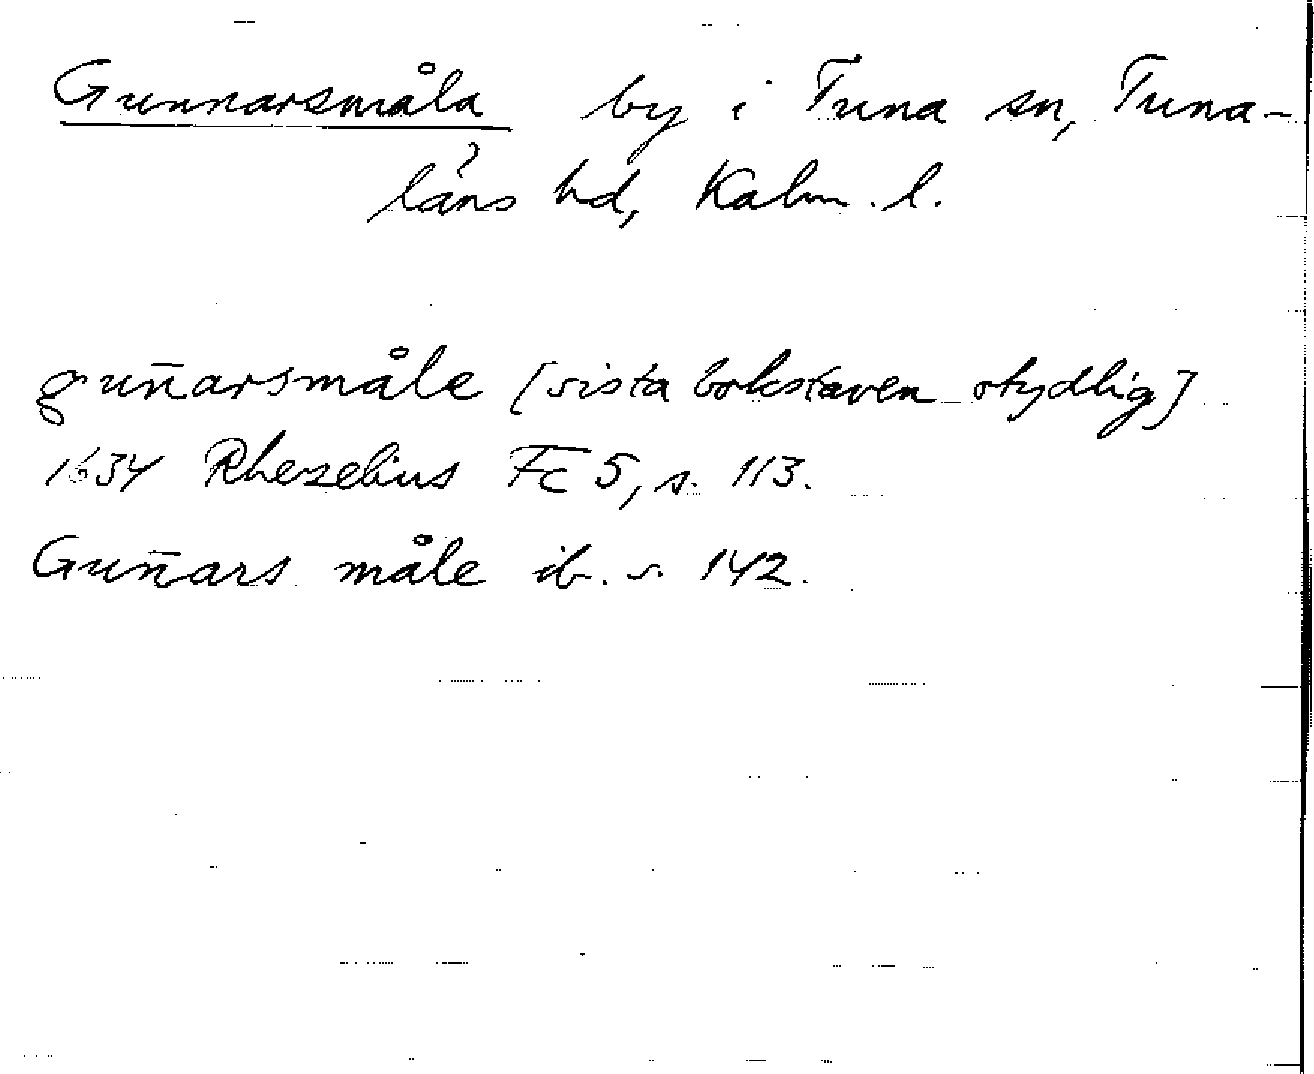 Gunnarsmåla by i Tuna sn, Tuna-
läns hd, Kalm. l.
gun̄arsmåle [sista bokstaven otydlig]
1634 Rhezelius Fc 5, s. 113.
Gun̄ars måle ib. s. 142.